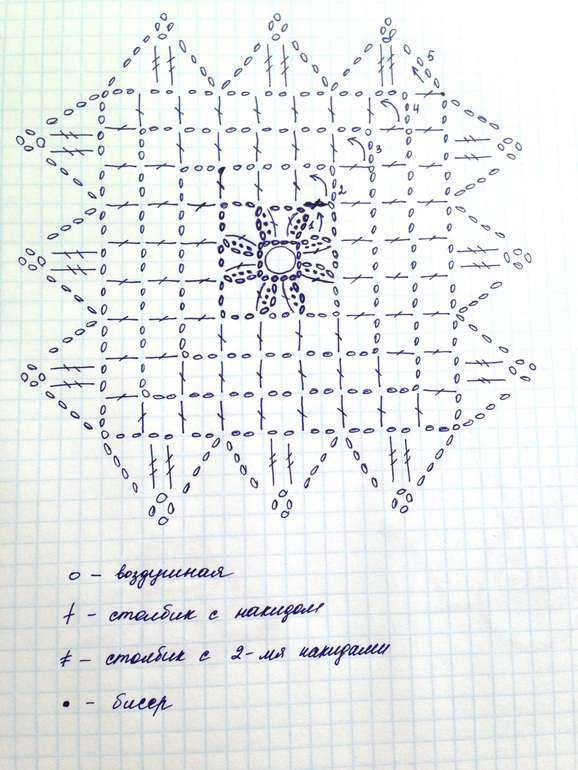 5
4
3
2
1
о - воздушная
† - столбик с накидом
ǂ - столбик с 2-мя накидами
• - бисер